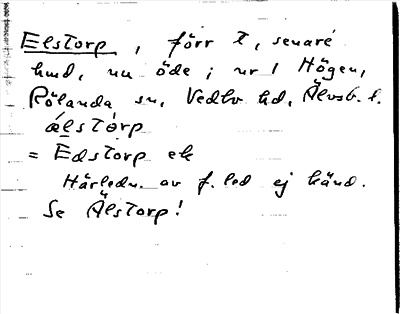 Elstorp, förr t, senare
hmd, nu öde; nr 1 Högen,
Rölanda sn, Vedbo hd, Älvsb. l.
álstòrp
= Edstorp ek
Härledn. av f. led ej känd.
Se Älstorp!